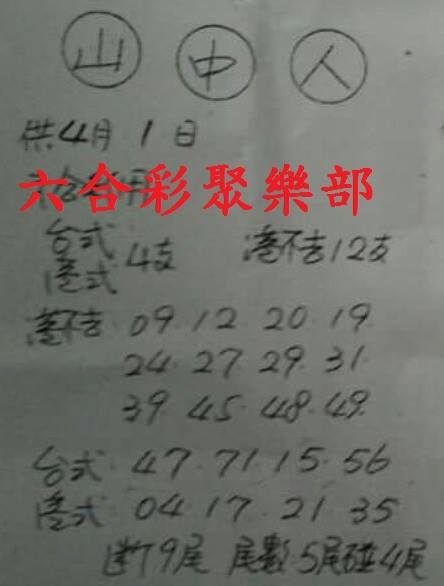 山 中 人
供4月1日
六合彩聚樂部
台式
港式 4支 港不吉12支
港不吉 09. 12. 20. 19.
24. 27. 29. 31.
39. 45. 48. 49.
台式 47. 71. 15. 56
港式 04. 17. 21. 35
断9尾 尾數 5尾碰4尾